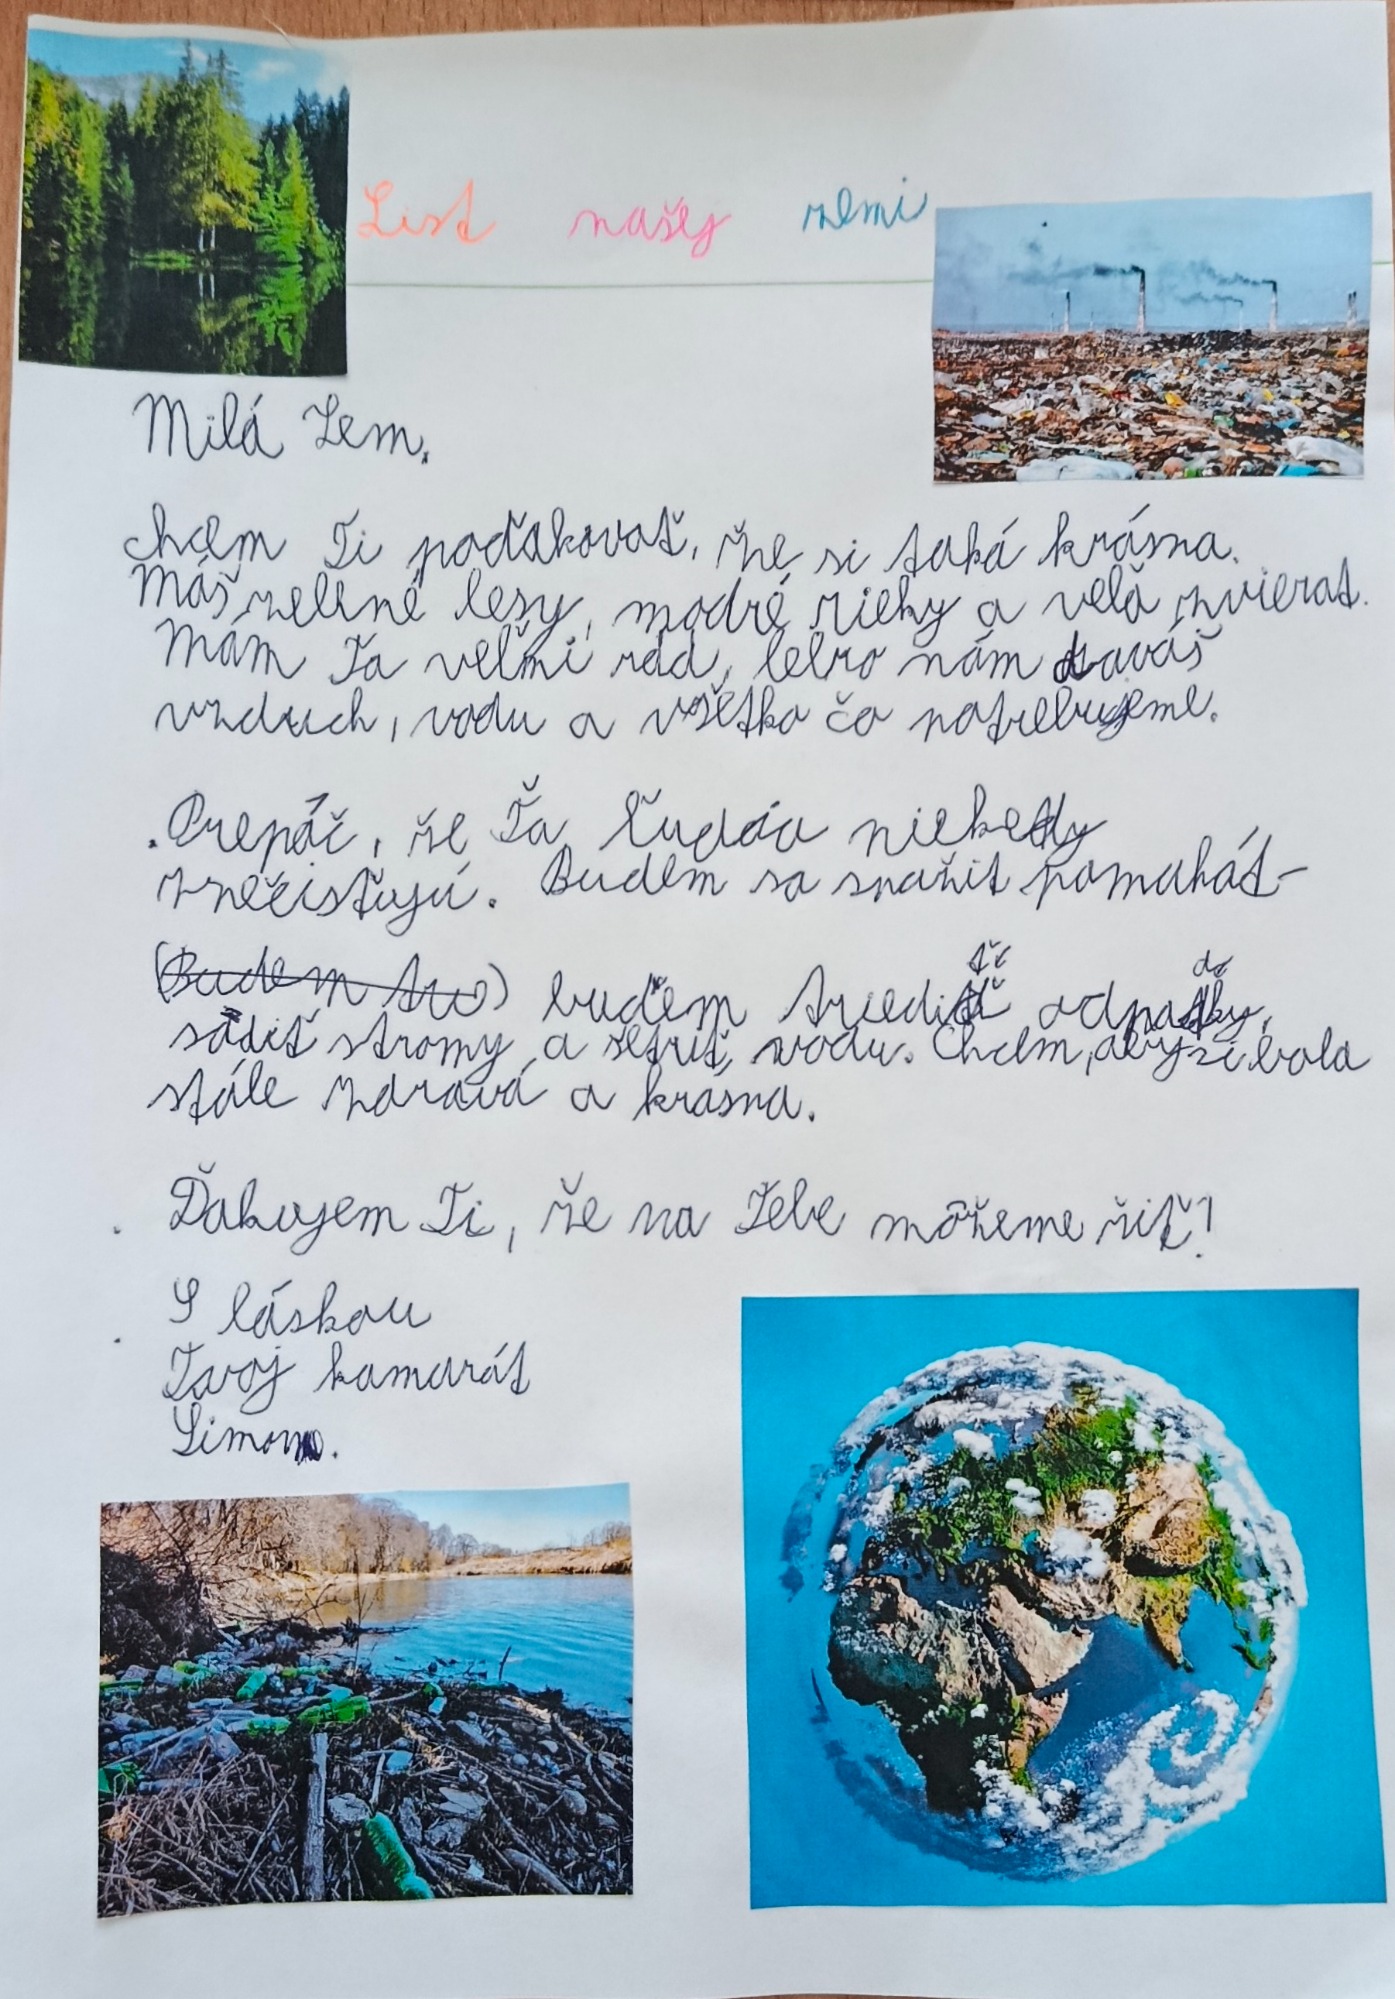 List našej zemi
Milá Zem,
chcem Ti poďakovať, že si taká krásna.
Máš zelené lesy, modré rieky a veľa zvierat.
Mám Ťa veľmi rád, lebo nám davaš
vzduch, vodu a všetko čo potrebujeme.
Prepáč, že Ťa ľudia niekedy
znečisťujú. Budem sa snažiť pomáhať
(Budem tre) budem triediť odpadky,
sadiť stromy a šetriť vodu. Chcem, aby si bola
stále zdravá a krásna.
Ďakujem Ti, že na Tebe môžeme žiť!
S láskou
Tvoj kamarát
Simon.